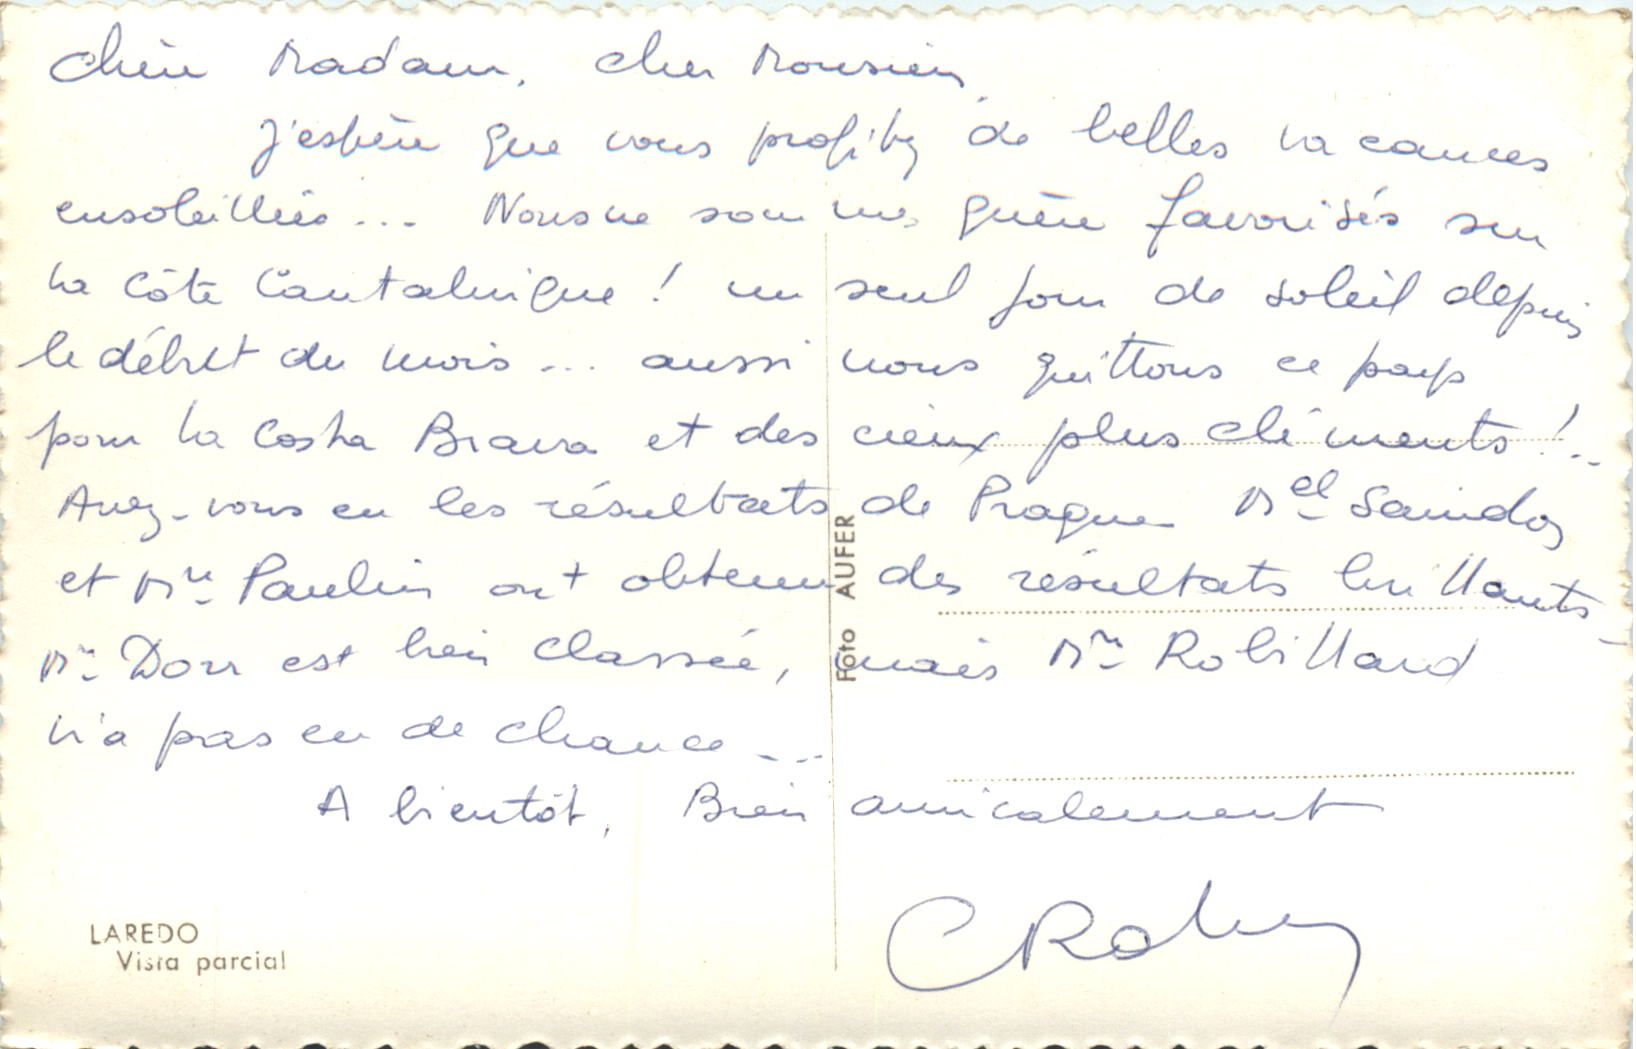 Chère Madame, cher Monsieur,
J'espère que vous profitez de belles vacances
ensoleillées... Nous ne sommes guère favorisés sur
la Côte Cantabrique ! un seul jour de soleil depuis
le début du mois... aussi nous quittons ce pays
pour la Costa Brava et des cieux plus cléments !..
Avez-vous eu les résultats de Prague Mel
et Me Paulin ont obtenu des résultats brillants -
Me Dorr est bien classée, mais Me Robillard
n'a pas eu de chance...
A bientôt, Bien amicalement
LAREDO
Vista parcial
Foto AUFER